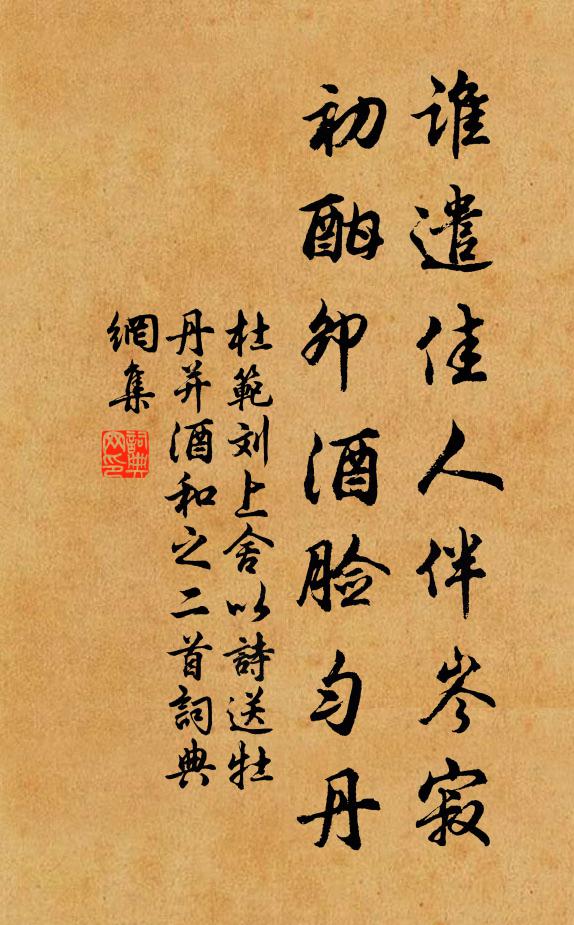 谁遣佳人伴岑寂
初酣卯酒脸匀丹
杜範刘上舍以詩送牡
丹并酒和之二首詞典
網集
詞典
网印